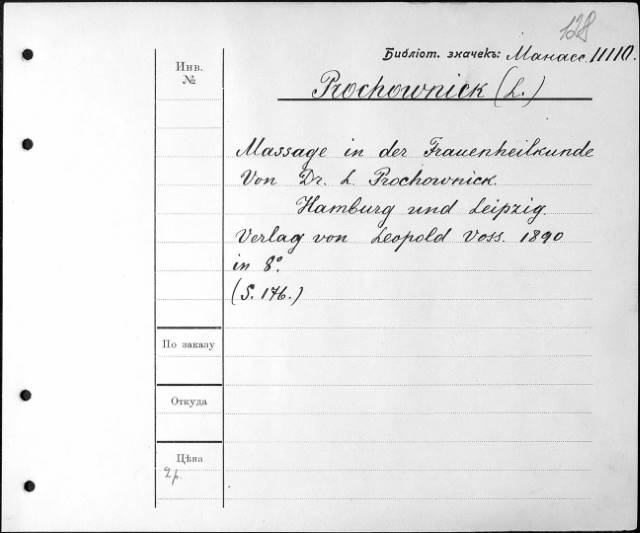 128
Библіот. значекъ: Манасс. 11110.
Инв.
№
Prochownick (L.)
Massage in der Frauenheilkunde
Von Dr. L. Prochownick.
Hamburg und Leipzig.
Verlag von Leopold Voss. 1890
in 8°.
(S. 176.)
По заказу
Откуда
Цѣна
2 р.